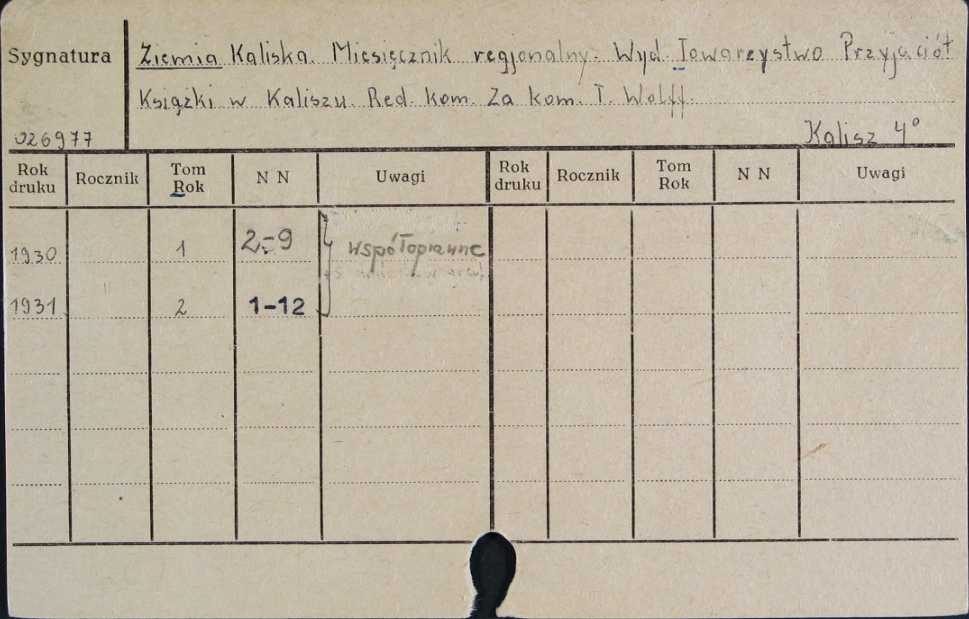 Sygnatura
Ziemia Kaliska. Miesięcznik regjonalny. Wyd. Towarzystwo Przyjaciół
Książki w Kaliszu. Red. kom. Za kom. T. Wolff.
026977
Kalisz 4°
Rok druku Rocznik Tom Rok N N Uwagi Rok druku Rocznik Tom Rok N N Uwagi
1930 1 2-9 współoprawne
1931 2 1-12